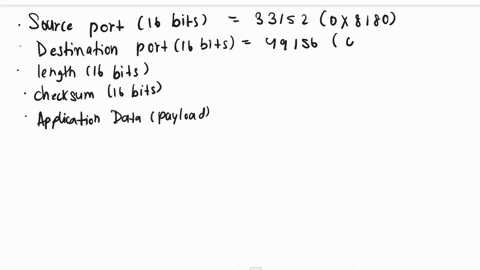 · Source port (16 bits) = 33152 (0x8180)
· Destination port (16 bits) = 49156 (0
· length (16 bits)
· checksum (16 bits)
· Application Data (payload)